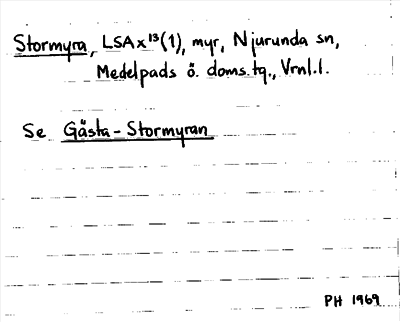 Stormyra, LSA x¹³(1), myr, Njurunda sn,
Medelpads ö. doms.tg., Vrnl.l.
Se Gästa-Stormyran
PH 1969